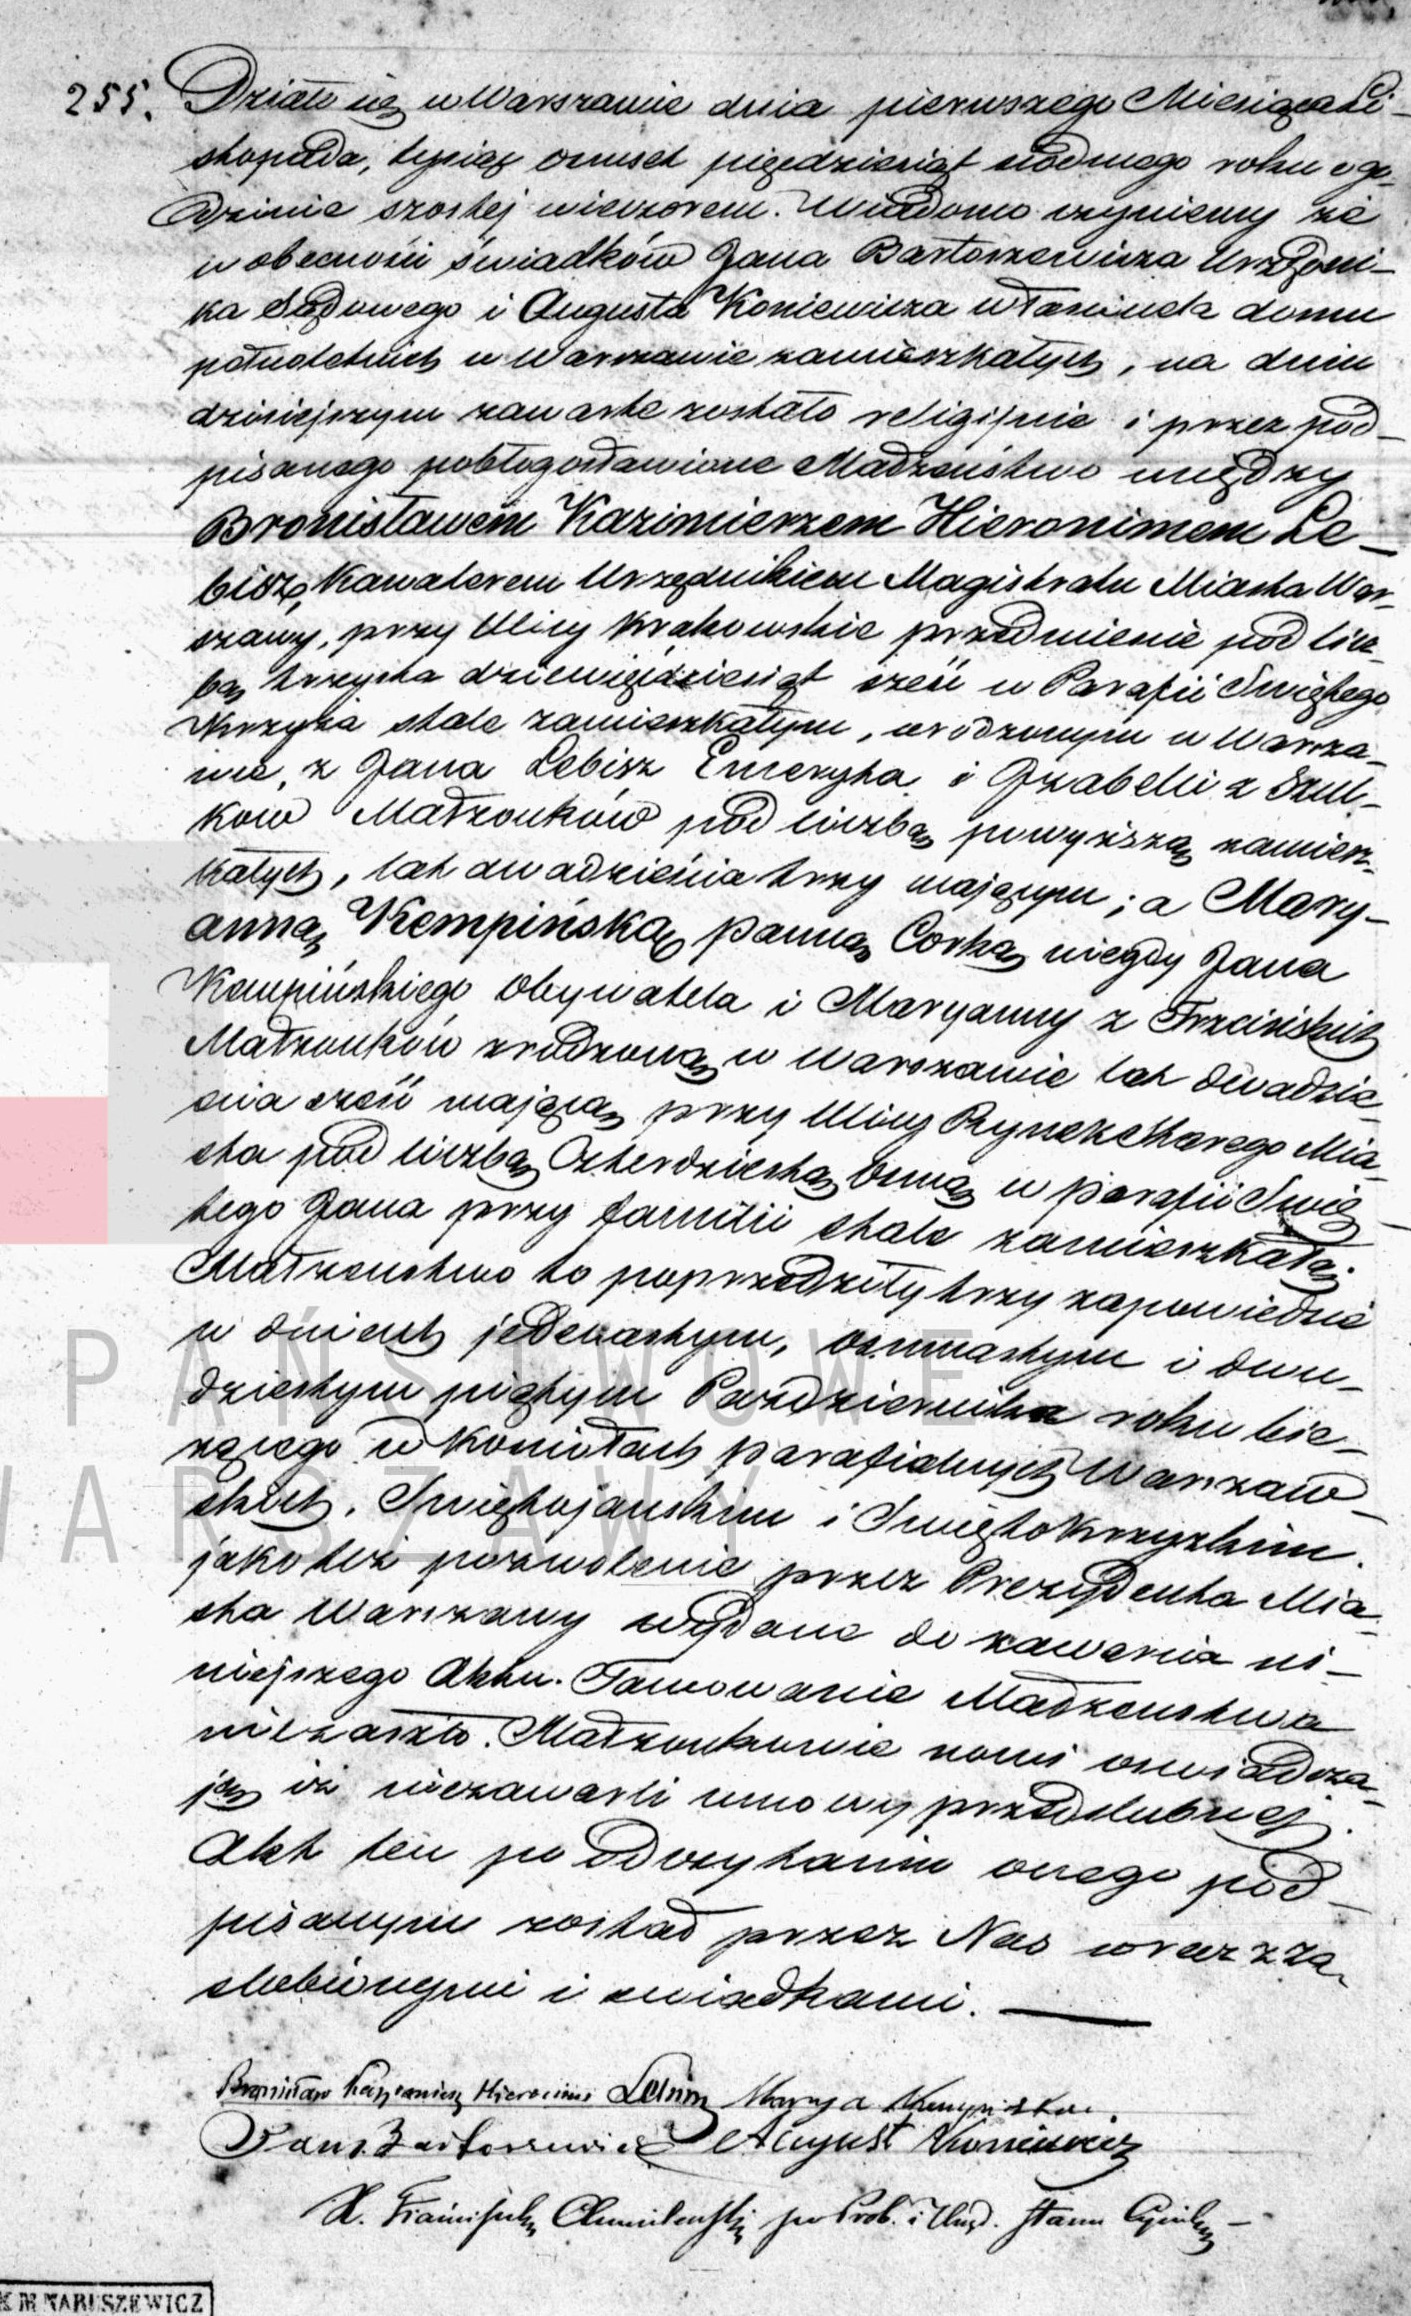 255. Działo się w Warszawie dnia pierwszego Miesiąca Li-
stopada, tysiąc ośmset pięćdziesiąt siódmego roku o go-
dzinie szóstej wieczorem. Wiadomo czyniemy że
w obecności świadków Jana Bartoszewicza Urzędni-
ka Sądowego i Augusta Koniewicza właściciela domu
pełnoletnich w Warszawie zamieszkałych, na dniu
dzisiejszym zawarte zostało religijnie i przez pod-
pisanego pobłogosławione Małżeństwo między
Bronisławem Kazimierzem Hieronimem Le-
bisz, Kawalerem Urzędnikiem Magistratu Miasta War-
szawy, przy Ulicy Krakowskie przedmieście pod licz-
bą trzysta dziewięćdziesiąt sześć w Parafii Świętego
Krzyża stale zamieszkałym, urodzonym w Warsza-
wie, z Jana Lebisz Emeryta i Izabelli z Szul-
ków Małżonków pod liczbą powyższą zamiesz-
kałych, lat dwadzieścia trzy mającym; a Mary-
anną Kempińską panną Córką niegdy Jana
Kempińskiego Obywatela i Maryanny z Trzcińskich
Małżonków zrodzoną w Warszawie lat dwadzie-
ścia sześć mającą przy Ulicy Rynek Starego Mia-
sta pod liczbą Czterdziestą Ósmą w parafii Świę-
tego Jana przy familii stale zamieszkałą.
Małżeństwo to poprzedziły trzy zapowiedzie
w dniach jedenastym, osmnastym i dwu-
dziestym piątym Października roku bie-
żącego w Kościołach parafialnych Warszaw-
skich, Świętojańskim i Świętokrzyzkim.
jako też pozwolenie przez Prezydenta Mia-
sta Warszawy wydane do zawarcia ni-
niejszego Aktu. Tamowanie Małżeństwa
niezaszło. Małżonkowie nowi oświadcza-
ją iż niezawarli umowy przedślubnej.
Akt ten po odczytaniu onego pod-
pisanym został przez Nas wraz z za-
ślubionymi i świadkami.
Bronisław Kazimierz Hieronim Lebisz Marya Kempińska.
Jan Bartoszewicz August Koniewicz
X. Franciszek
PAŃSTWOWE
WARSZAWY
K M NARUSZEWICZ